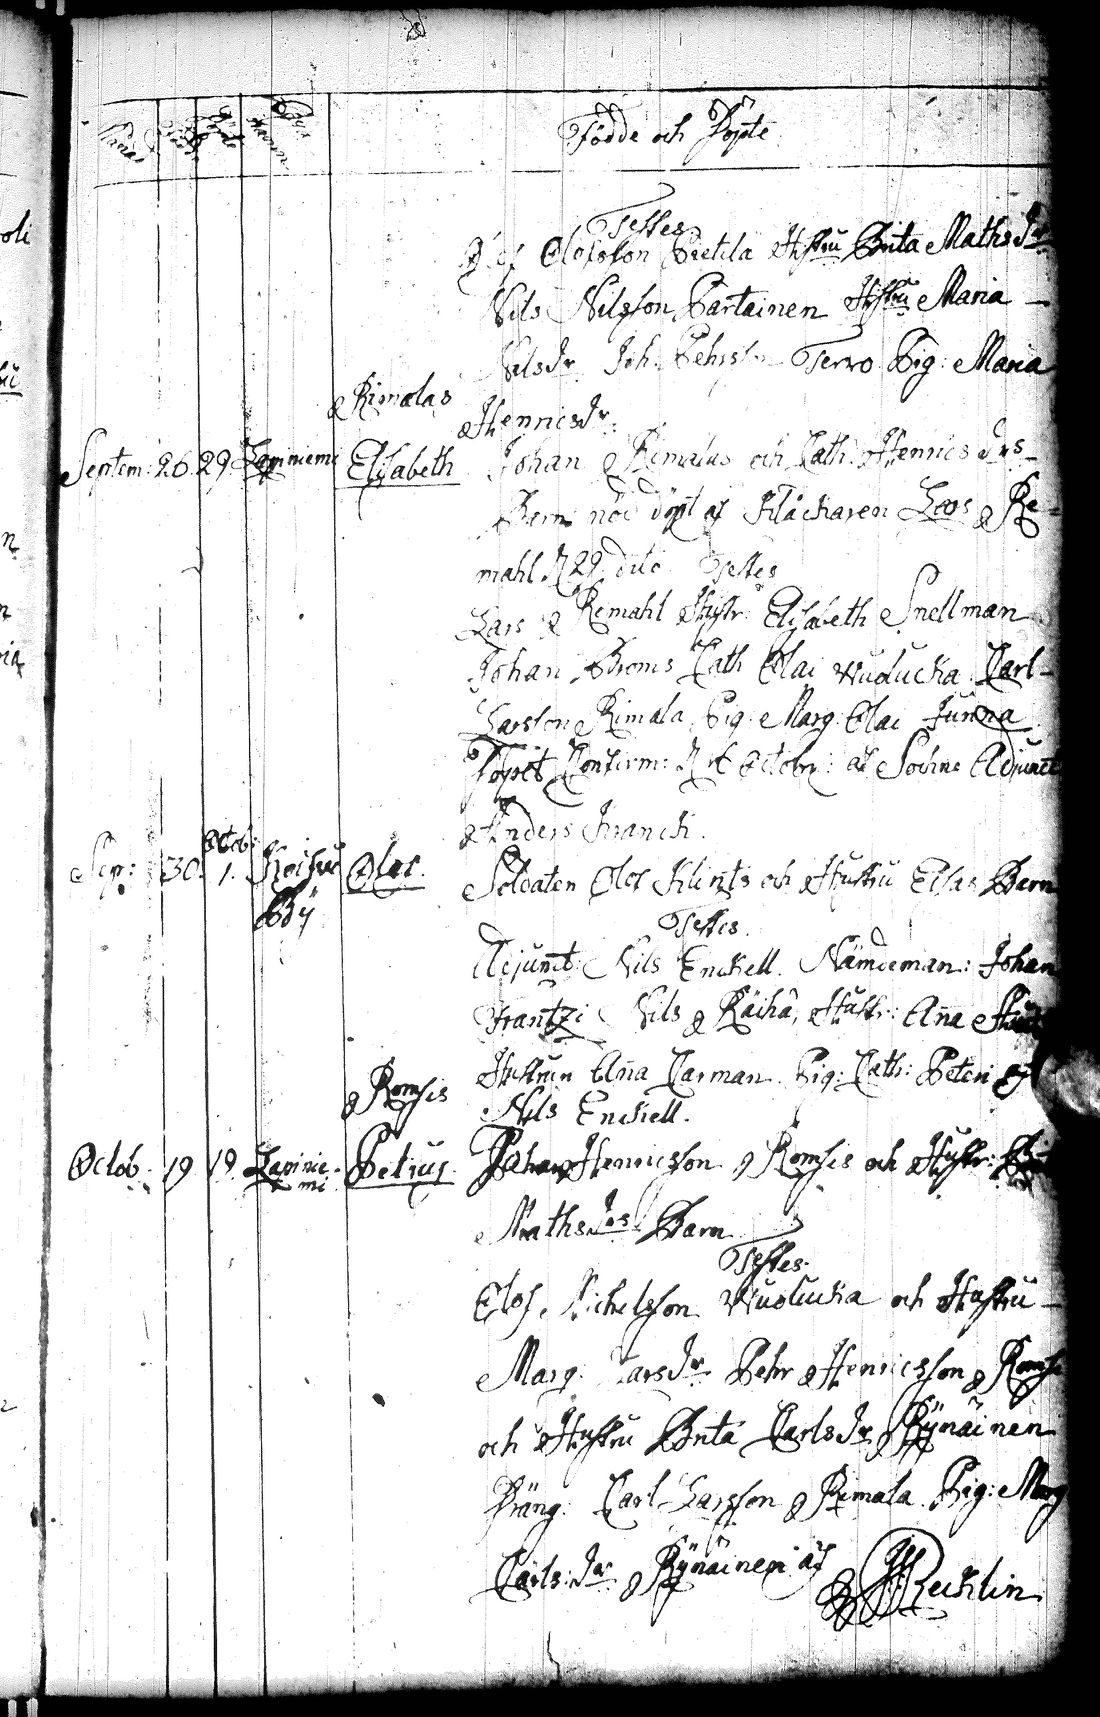 Födde och Döpte
Testes
Olof Olofsson Pietila Hustru Brita Maths Dr
Nils Nilsson Partainen Hustru Maria
Nils Dr Joh. Pehrsson Tervo Pig: Maria
Rimalas
Henrics Dr.
Septem: 26. 29. Lapiniemi Elisabeth Johan Rimalus och Cath: Henrics Drs
Barn nöd döpt af Klåckaren Lars Re-
mahl d 29 dito Testes
Lars Remahl Hustr: Elisabeth Snellman
Johan Broms Cath Olai Wuolucka Carl
Larsson Rimala Pig: Marg: Olai Junna
Döpet Confirm: Octobr: af Sockne Adjunct
Anders Franck.
Octob:
Sep: 30. 1. Koifwu Olof. Soldaten Olof Klints och Hustru Elsas Barn
Bÿ
Testes.
Adjunct: Nils Enckell. Nämdeman: Johan
Frantzi Nils Räihä, Hustr: Aña
Hustrun Aña Carman Pig: Cath: Peteri af
Romsis
Nils Enckell.
Octob. 19 19 Lapinie-mi Petrus. Johan Henricsson Romsis och Hustr:
Maths Drs Barn
Testes.
Olof Michelsson Wuolucka och Hustru
Marg: Lars Dr Pehr Henricsson Romsi
och Hustru Brita Carls Dr Rÿnäinen
Dräng: Carl Larsson Rimala Pig: Marg
Carls: Dr Rÿnäinen af
Reiklin